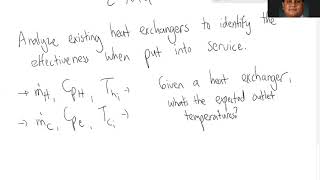 Analyze existing heat exchangers to identify the
effectiveness when put into service.
→ ṁH, CpH, Thi →
→ ṁc, Cpc, Tci →
Given a heat exchanger,
whats the expected outlet
temperatures?